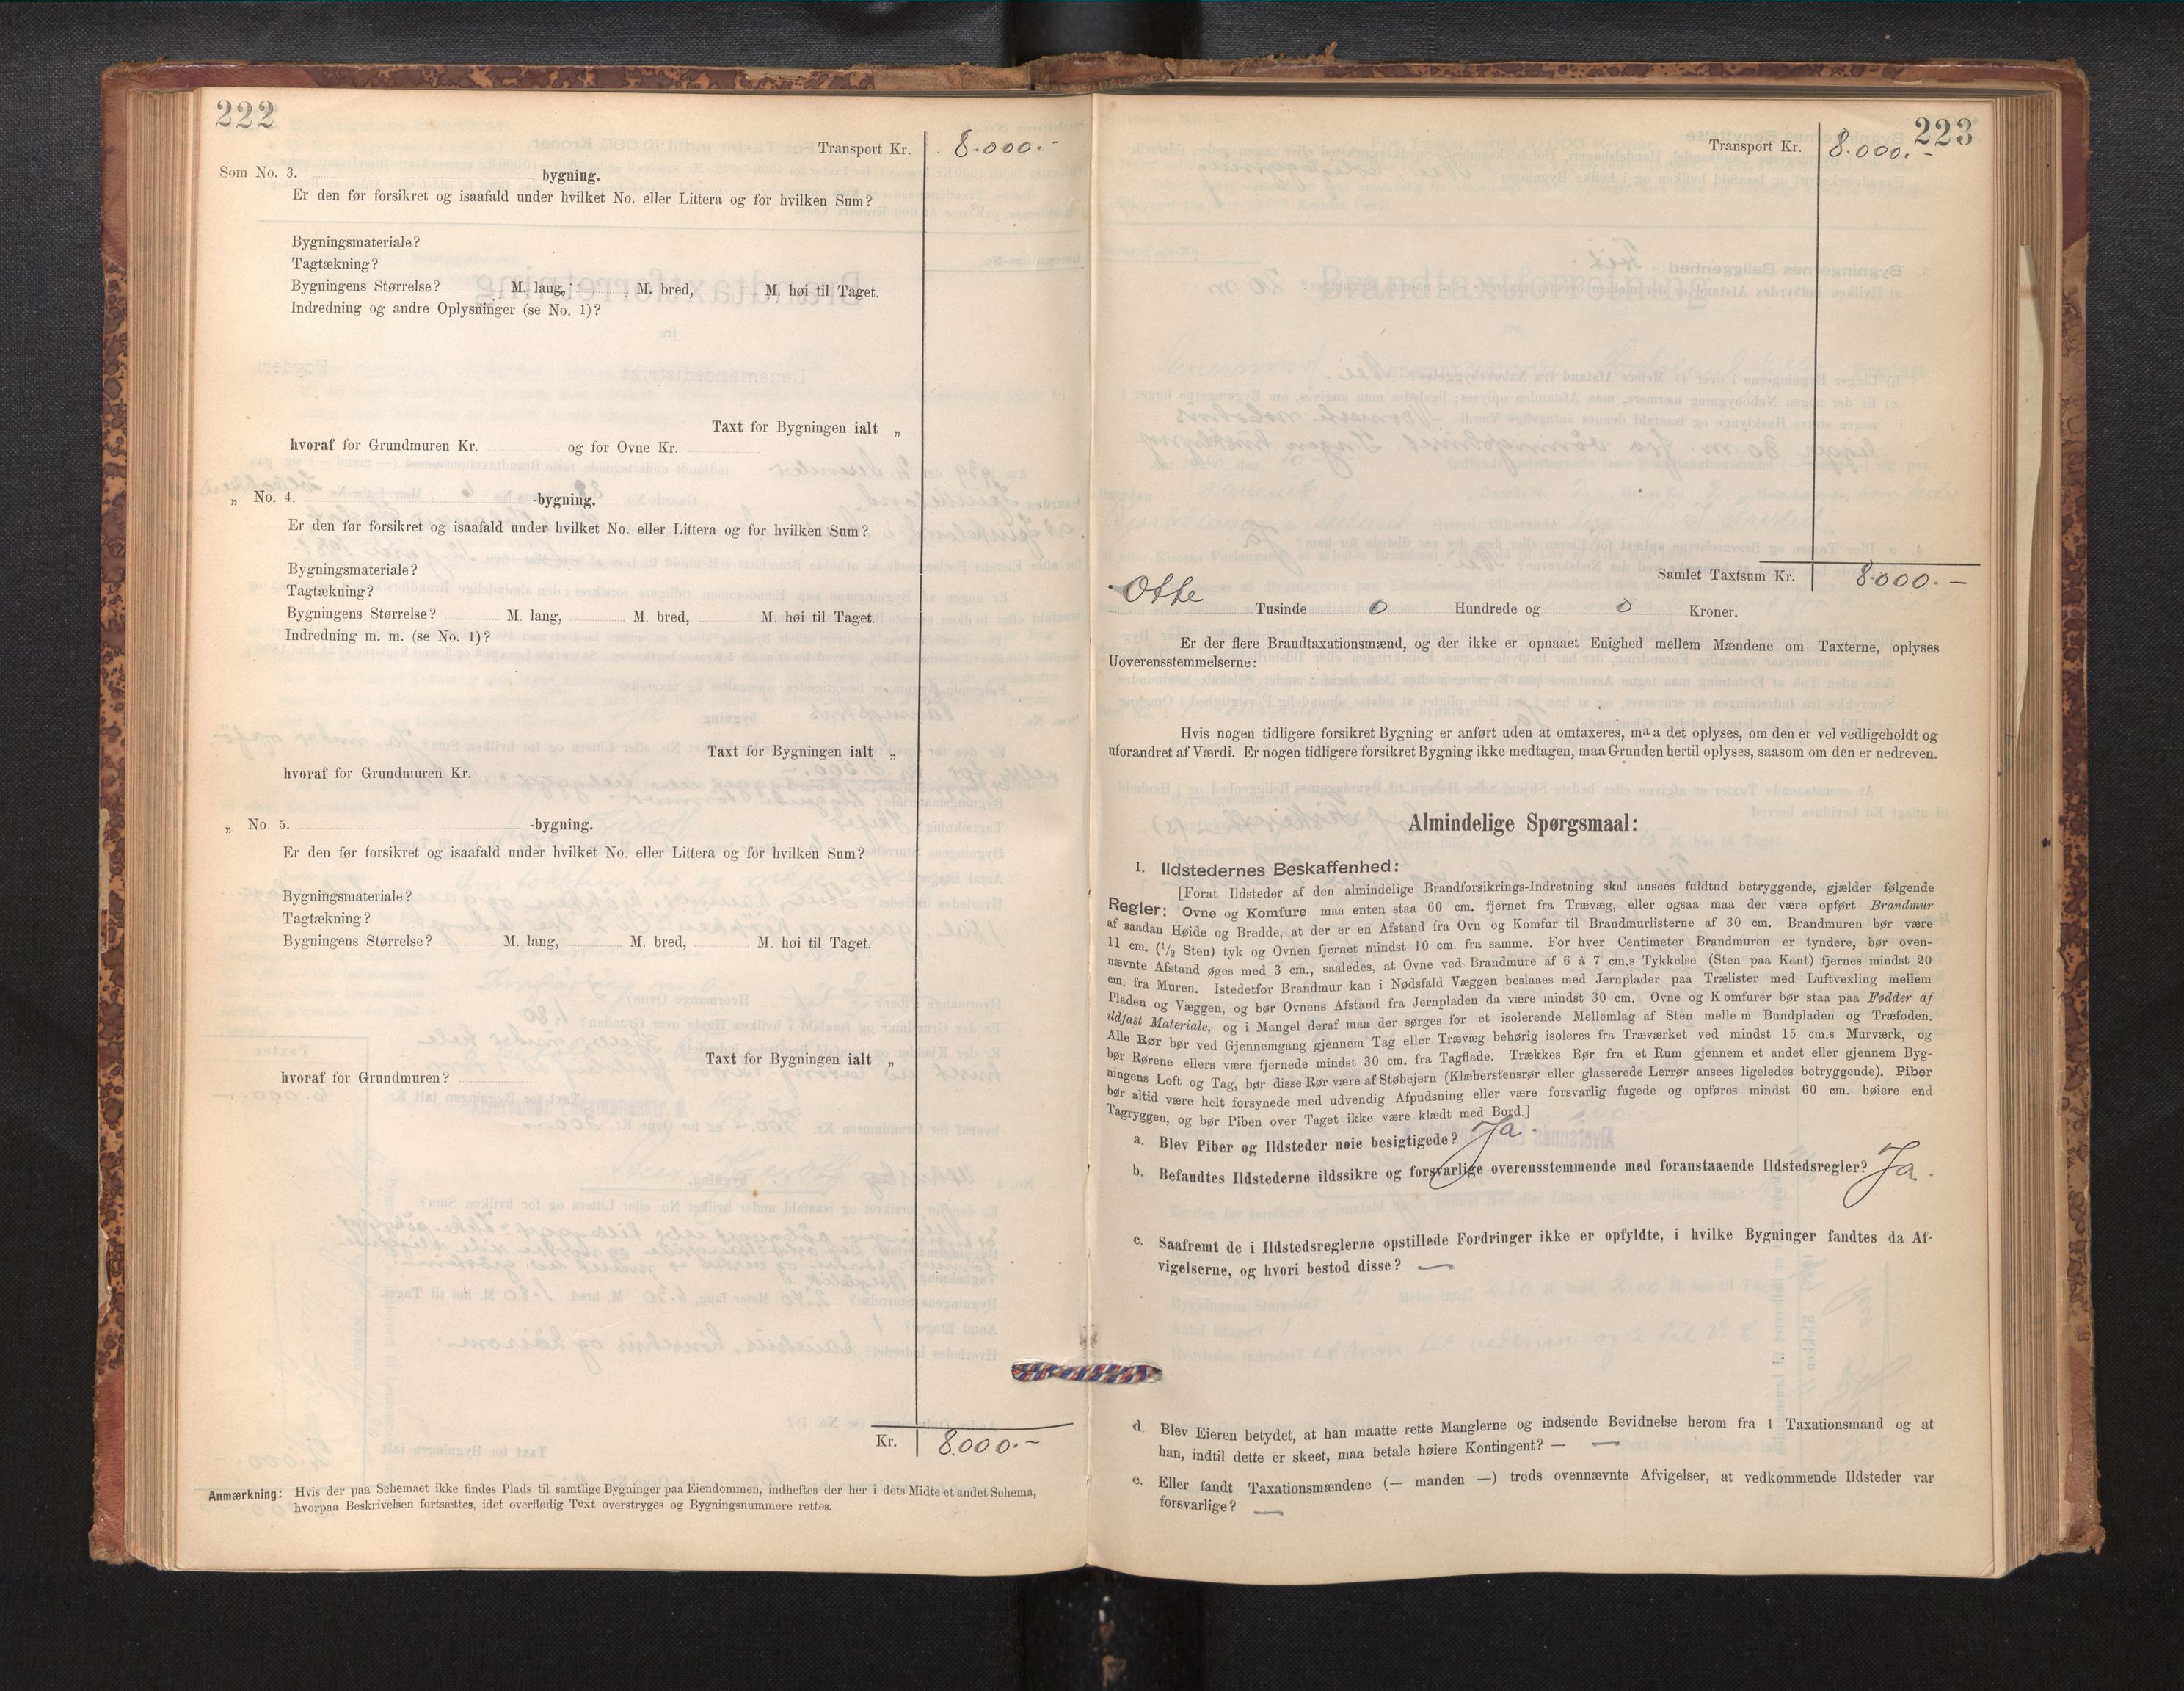 222
Transport Kr. 8.000.-
Som No. 3. bygning.
Er den før forsikret og isaafald under hvilket No. eller Littera og for hvilken Sum?
Bygningsmateriale?
Tagtækning?
Bygningens Størrelse? M. lang, M. bred, M. høi til Taget.
Indredning og andre Oplysninger (se No. 1)?
Taxt for Bygningen ialt „
hvoraf for Grundmuren Kr. og for Ovne Kr.
„ No. 4. -bygning.
Er den før forsikret og isaafald under hvilket No. eller Littera og for hvilken Sum?
Bygningsmateriale?
Tagtækning?
Bygningens Størrelse? M. lang, M. bred, M. høi til Taget.
Indredning m. m. (se No. 1)?
Taxt for Bygningen ialt „
hvoraf for Grundmuren Kr.
„ No. 5. -bygning.
Er den før forsikret og isaafald under hvilket No. eller Littera og for hvilken Sum?
Bygningsmateriale?
Tagtækning?
Bygningens Størrelse? M. lang, M. bred, M. høi til Taget.
Taxt for Bygningen ialt „
hvoraf for Grundmuren?
Kr. 8.000.-
Anmærkning: Hvis der paa Schemaet ikke findes Plads til samtlige Bygninger paa Eiendommen, indheftes der her i dets Midte et andet Schema,
hvorpaa Beskrivelsen fortsættes, idet overflødig Text overstryges og Bygningsnummere rettes.
223
Transport Kr. 8.000.-
Samlet Taxtsum Kr. 8.000.-
Otte Tusinde 0 Hundrede og 0 Kroner.
Er der flere Brandtaxationsmænd, og der ikke er opnaaet Enighed mellem Mændene om Taxterne, oplyses
Uoverensstemmelserne:
Hvis nogen tidligere forsikret Bygning er anført uden at omtaxeres, maa det oplyses, om den er vel vedligeholdt og
uforandret af Værdi. Er nogen tidligere forsikret Bygning ikke medtagen, maa Grunden hertil oplyses, saasom om den er nedreven.
Almindelige Spørgsmaal:
1. Ildstedernes Beskaffenhed:
[Forat Ildsteder af den almindelige Brandforsikrings-Indretning skal ansees fuldtud betryggende, gjælder følgende
Regler: Ovne og Komfure maa enten staa 60 cm. fjernet fra Trævæg, eller ogsaa maa der være opført Brandmur
af saadan Høide og Bredde, at der er en Afstand fra Ovn og Komfur til Brandmurlisterne af 30 cm. Brandmuren bør være
11 cm. (1/2 Sten) tyk og Ovnen fjernet mindst 10 cm. fra samme. For hver Centimeter Brandmuren er tyndere, bør oven-
nævnte Afstand øges med 3 cm., saaledes, at Ovne ved Brandmure af 6 à 7 cm.s Tykkelse (Sten paa Kant) fjernes mindst 20
cm. fra Muren. Istedetfor Brandmur kan i Nødsfald Væggen beslaaes med Jernplader paa Trælister med Luftvexling mellem
Pladen og Væggen, og bør Ovnens Afstand fra Jernpladen da være mindst 30 cm. Ovne og Komfurer bør staa paa Fødder af
ildfast Materiale, og i Mangel deraf maa der sørges for et isolerende Mellemlag af Sten mellem Bundpladen og Træfoden.
Alle Rør bør ved Gjennemgang gjennem Tag eller Trævæg behørig isoleres fra Træværket ved mindst 15 cm.s Murværk, og
bør Rørene ellers være fjernede mindst 30 cm. fra Tagflade. Trækkes Rør fra et Rum gjennem et andet eller gjennem Byg-
ningens Loft og Tag, bør disse Rør være af Støbejern (Klæberstensrør eller glasserede Lerrør ansees ligeledes betryggende). Piber
bør altid være helt forsynede med udvendig Afpudsning eller være forsvarlig fugede og opføres mindst 60 cm. høiere end
Tagryggen, og bør Piben over Taget ikke være klædt med Bord.]
a. Blev Piber og Ildsteder nøie besigtigede? Ja.
b. Befandtes Ildstederne ildssikre og forsvarlige overensstemmende med foranstaaende Ildstedsregler? Ja.
c. Saafremt de i Ildstedsreglerne opstillede Fordringer ikke er opfyldte, i hvilke Bygninger fandtes da Af-
vigelserne, og hvori bestod disse? —
d. Blev Eieren betydet, at han maatte rette Manglerne og indsende Bevidnelse herom fra 1 Taxationsmand og at
han, indtil dette er skeet, maa betale høiere Kontingent? — —
e. Eller fandt Taxationsmændene (— manden —) trods ovennævnte Afvigelser, at vedkommende Ildsteder var
forsvarlige? —